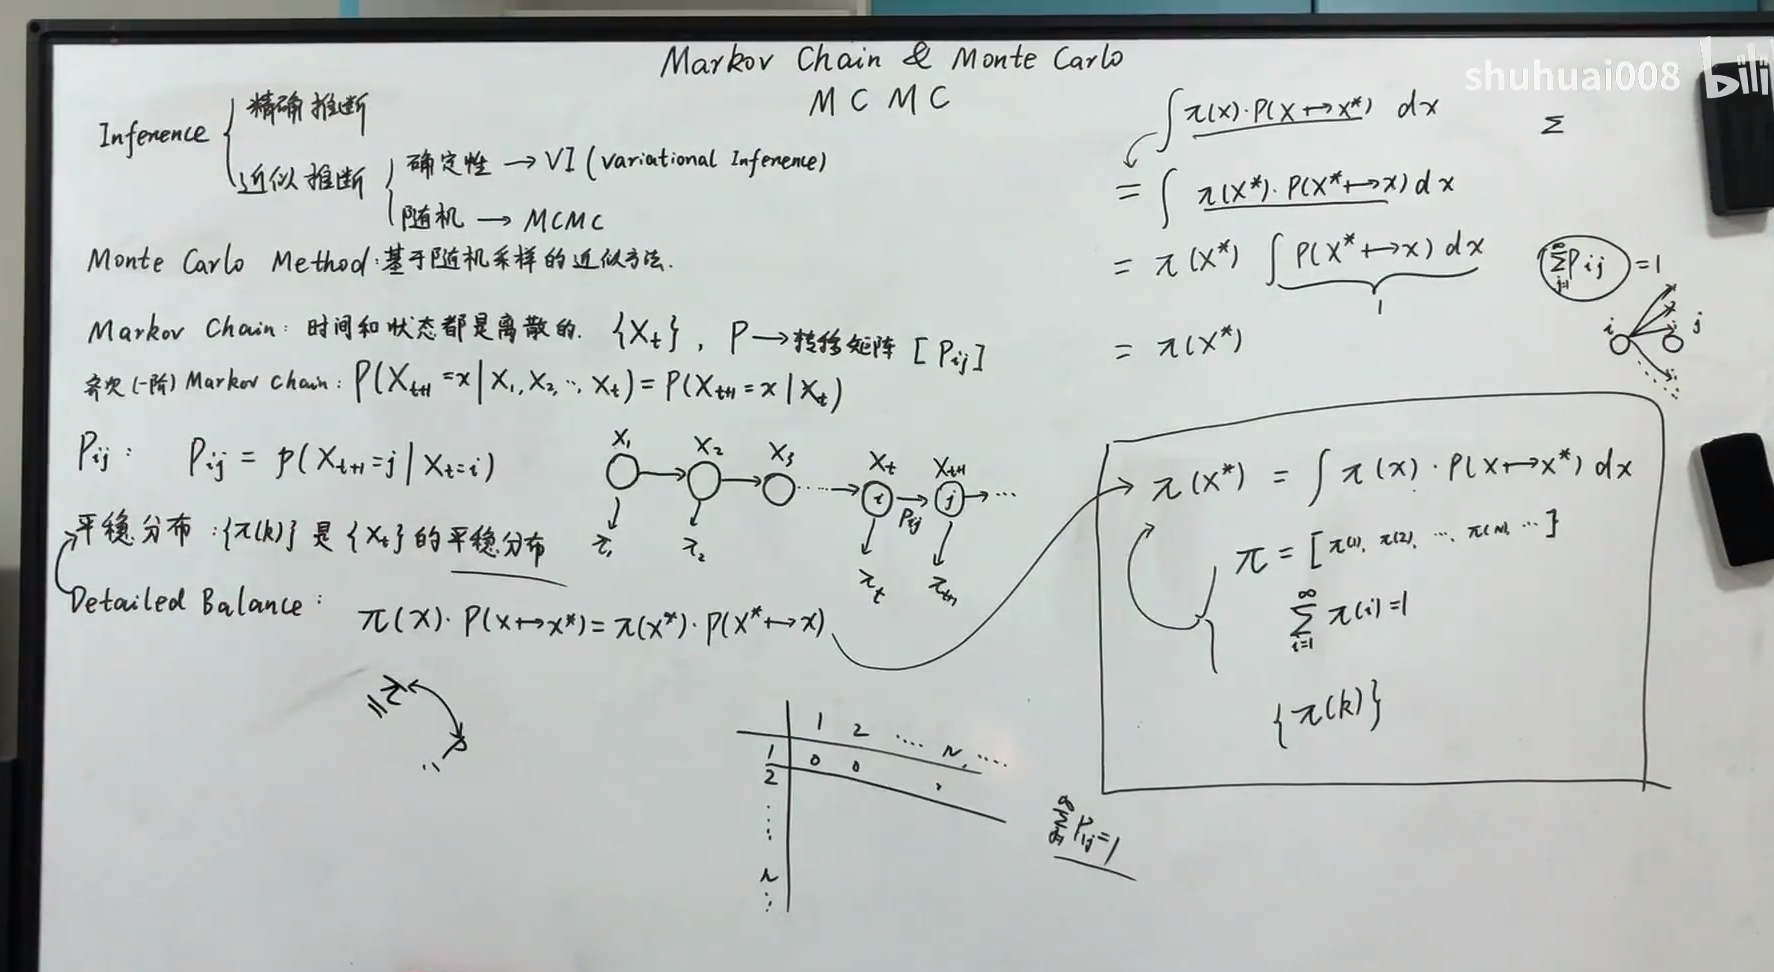 Markov Chain & Monte Carlo
MCMC
shuhuai008 bili
Inference { 精确推断
近似推断 { 确定性 → VI (variational Inference)
随机 → MCMC
Monte Carlo Method: 基于随机采样的近似方法.
Markov Chain: 时间和状态都是离散的. {X_t}, P → 转移矩阵 [P_{ij}]
齐次(一阶) Markov Chain: P(X_{t+1}=x | X_1, X_2, ..., X_t) = P(X_{t+1}=x | X_t)
P_{ij}: P_{ij} = p(X_{t+1}=j | X_t=i)
X_1 → X_2 → X_3 ...... → X_t → X_{t+1} → ...
i P_{ij} j
π_1 π_2 π_t π_{t+1}
平稳分布: {π(k)} 是 {X_t} 的平稳分布
Detailed Balance:
π(x)·P(x↦x*) = π(x*)·P(x*↦x)
π
P
1 2 .... N, ....
1 0 0
2
⋮
N
⋮
∑_{j=1}^∞ P_{1j} = 1
∫ π(x)·P(x↦x*) dx
= ∫ π(x*)·P(x*↦x) dx
= π(x*) ∫ P(x*↦x) dx
1
= π(x*)
Σ
∑_{j=1}^∞ P_{ij} = 1
i j
π(x*) = ∫ π(x)·P(x↦x*) dx
π = [π(1), π(2), ..., π(N), ...]
∑_{i=1}^∞ π(i) = 1
{π(k)}